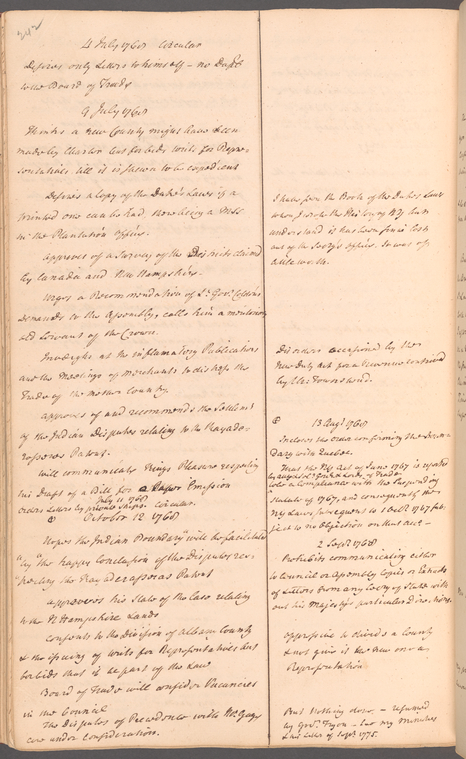 242
4 July 1768 Circular
Desires only Letters to himself – no Dupl.
to the Board of Trade
9 July 1768
Thinks a new County might have been
made by Charter but forbids writs for Repre-
sentatives till it is shewn to be expedient
Desires a Copy of the Duke's Laws if a
printed one can be had, there being a MSS
in the Plantation Office.
approves of a Survey of the Districts claimed
by Canada and New Hampshire.
Urges a Recommendation of Lt. Govr. Colden's
Demands to the Assembly, calls him a meritorious
old Servant of the Crown.
Inveighs at the inflammatory Publications
and the Meetings of Merchants to distress the
Trade of the mother County.
approves of and recommends the Settlemt.
of the Indian Disputes relating to the Kayade-
rosseras Patent.
will communicate Kings Pleasure respecting
his Draft of a Bill for a Paper Emission
July 11 1768
Orders Letters by private Ships. Circular.
October 12 1768
Hopes the Indian Boundary will be facilitated
by the happy Conclusion of the Disputes res-
pecting the Kayaderasseras Patent
approves his State of the Case relating
to the N Hampshire Lands
consents to the Division of Albany County
& the issuing of writs for Representatives but
forbids that it be part of the Law
Board of Trade will consider Vacancies
in the Council
The Disputes of Precedence with Mr. Gage
are under Consideration.
I have seen the Book of the Dukes Laws
when I wrote the History of NY but
understand it has been since lost
out of the Secry's Office. It was of
little worth.
Disorders occasioned by the
New Duty Act for a Revenue contrived
by Chs. Townshend.
13 Augt 1768
Incloses the order confirming the Boun-
dary with Quebec.
That the NY Act of June 1767 is reported
by
Lords of Trade
to be a Compliance with the Suspending
Statute of 1767, and consequently the
NY Laws subsequent to 1 Octr. 1767 sub-
ject to no Objection on that act –
2 Sept 1768
Prohibits communicating either
to Council or Assembly Copies or Extracts
of Letters from any Secry of State with
out his Majesty's particular Directions.
oppressive to divide a County
& not give the new one a
Representation
But Nothing done –
by Govr. Tryon – see my Minutes
& his Letter of Sept. 1775.